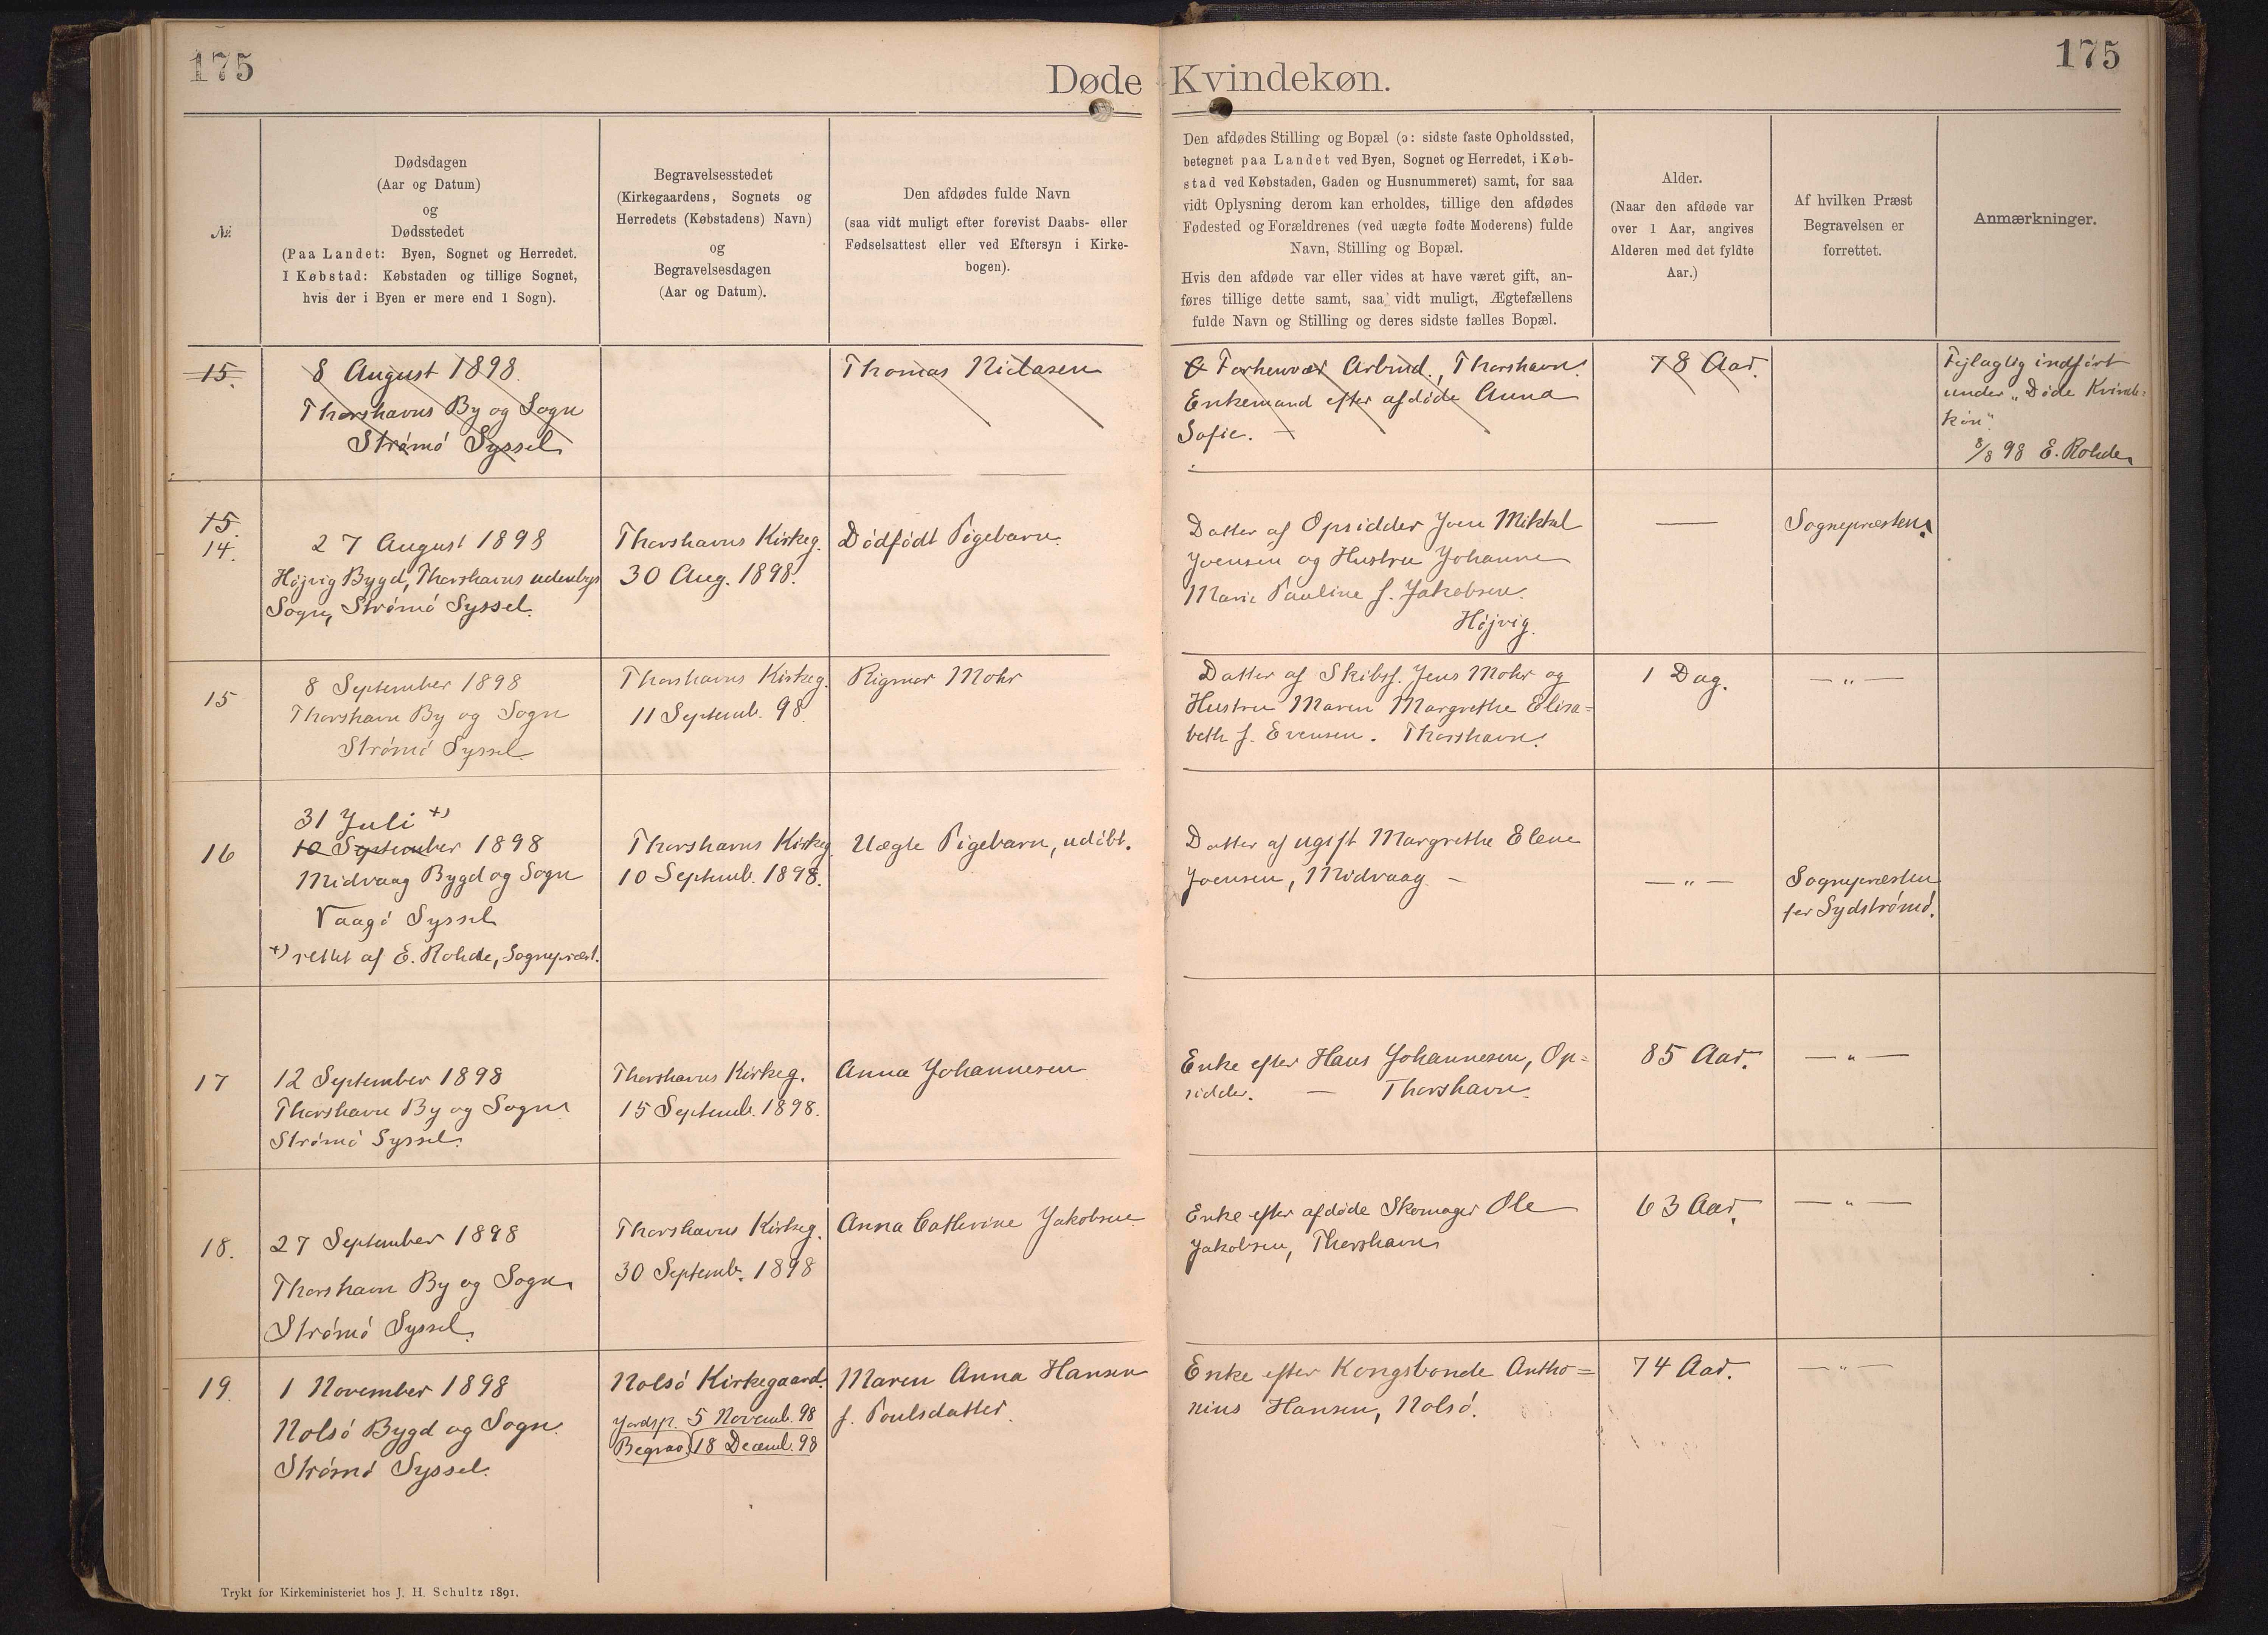 175
175
Døde Kvindekøn.
№
Dødsdagen
(Aar og Datum)
og
Dødsstedet
(Paa Landet: Byen, Sognet og Herredet.
I Købstad: Købstaden og tillige Sognet,
hvis der i Byen er mere end 1 Sogn).
Begravelsesstedet
(Kirkegaardens, Sognets og
Herredets (Købstadens) Navn)
og
Begravelsesdagen
(Aar og Datum).
Den afdødes fulde Navn
(saa vidt muligt efter forevist Daabs- eller
Fødselsattest eller ved Eftersyn i Kirke-
bogen).
Den afdødes Stilling og Bopæl (ɔ: sidste faste Opholdssted,
betegnet paa Landet ved Byen, Sognet og Herredet, i Køb-
stad ved Købstaden, Gaden og Husnummeret) samt, for saa
vidt Oplysning derom kan erholdes, tillige den afdødes
Fødested og Forældrenes (ved uægte fødte Moderens) fulde
Navn, Stilling og Bopæl.
Hvis den afdøde var eller vides at have været gift, an-
føres tillige dette samt, saa vidt muligt, Ægtefællens
fulde Navn og Stilling og deres sidste fælles Bopæl.
Alder.
(Naar den afdøde var
over 1 Aar, angives
Alderen med det fyldte
Aar.)
Af hvilken Præst
Begravelsen er
forrettet.
Anmærkninger.
15.
8 August 1898.
Thorshavns By og Sogn
Strömö Syssel
Thomas Niclasen
Forhenvær Arbmd., Thorshavn.
Enkemand efter afdöde Anna
Sofie. –
78 Aar.
Fejlagtig indfört
under "Döde Kvinde=
kön".
8/8 98 E. Rohde
15.
14.
27 August 1898
Höjvig Bygd, Thorshavns udenbys
Sogn, Strömö Syssel.
Thorshavns Kirkeg.
30 Aug. 1898.
Dödfödt Pigebarn.
Datter af Opsidder Joen Mikkal
Joensen og Hustru Johanne
Marie Pauline f. Jakobsen.
Höjvig.
—
Sognepræsten.
15
8 September 1898
Thorshavn By og Sogn
Strömö Syssel
Thorshavns Kirkeg.
11 Septemb. 98.
Rigmor Mohr
Datter af Skibsf. Jens Mohr og
Hustru Maren Margrethe Elisa=
beth f. Evensen. Thorshavn.
1 Dag.
— " —
16
31 Juli +)
10 September 1898
Midvaag Bygd og Sogn
Vaagö Syssel
+) rettet af E. Rohde, Sognepræst.
Thorshavns Kirkeg.
10 Septemb. 1898.
Uægte Pigebarn, udöbt.
Datter af ugift Margrethe Elene
Joensen, Midvaag. –
— " —
Sognepræsten
for Sydströmö.
17
12 September 1898
Thorshavn By og Sogn
Strömö Syssel.
Thorshavns Kirkeg.
15 Septemb. 1898.
Anna Johannesen
Enke efter Hans Johannesen, Op=
sidder. — Thorshavn.
85 Aar.
— " —
18.
27 September 1898
Thorshavn By og Sogn
Strömö Syssel.
Thorshavns Kirkeg.
30 Septemb. 1898
Anna Cathrine Jakobsen
Enke efter afdöde Skomager Ole
Jakobsen, Thorshavn
63 Aar.
— " —
19.
1 November 1898
Nolsö Bygd og Sogn.
Strömö Syssel.
Nolsö Kirkegaard.
Jordsp. 5 Novemb. 98
Begrav. 18 Decemb. 98
Maren Anna Hansen
f. Poulsdatter.
Enke efter Kongsbonde Antho=
nius Hansen, Nolsö.
74 Aar.
— " —
Trykt for Kirkeministeriet hos J. H. Schultz 1891.